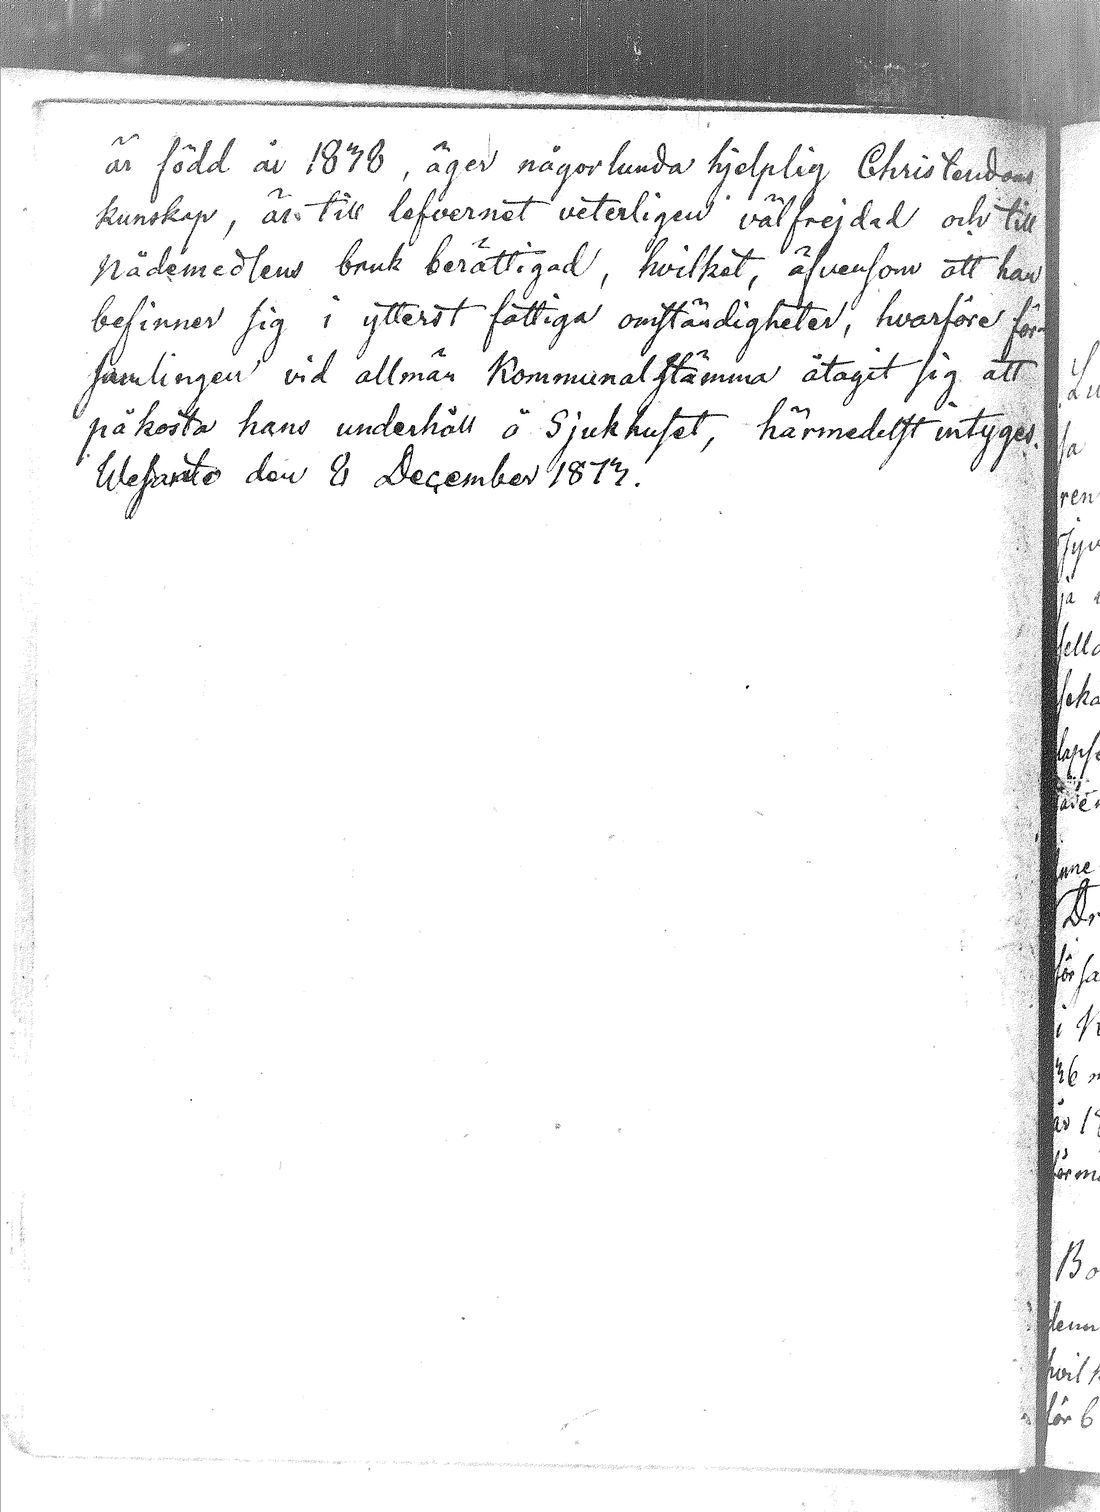 är född år 1838, äger någorlunda hjelplig Christendoms
kunskap, är till lefvernet veterligen välfrejdad och till
Nådemedlens bruk berättigad, hvilket, äfvensom att han
befinner sig i ytterst fattiga omständigheter, hvarföre för-
samlingen vid allmän Kommunalstämma åtagit sig att
påkosta hans underhåll å Sjukhuset, härmedelst intyges.
Wesanto den 8 December 1873.